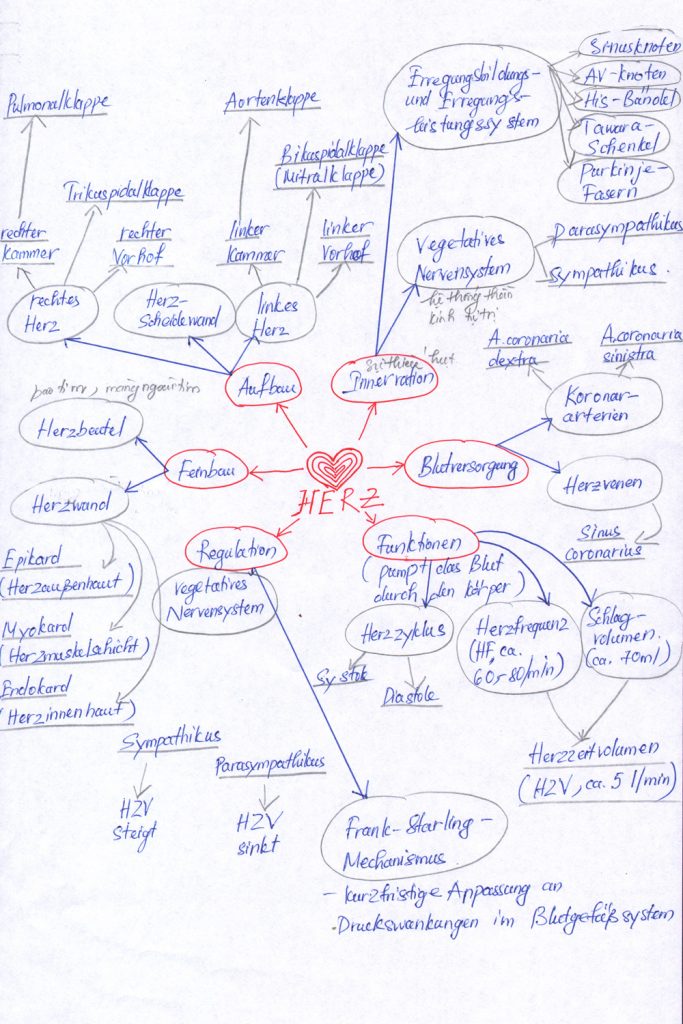 Erregungsbildungs-
und Erregungs-
leistungssystem
Sinusknoten
AV-knoten
His-Bündel
Tawara-
Schenkel
Purkinje-
Fasern
Pulmonalklappe
Aortenklappe
Bikuspidalklappe
(Mitralklappe)
Trikuspidalklappe
rechter
Kammer
rechter
Vorhof
linker
Kammer
linker
Vorhof
Vegetatives
Nervensystem
Parasympathikus
Sympathikus.
hệ thống thần
kinh tự trị
rechtes
Herz
Herz-
Scheidewand
linkes
Herz
Aufbau
Innervation
A.coronaria
dextra
A.coronaria
sinistra
Koronar-
arterien
bao tim, màng ngoài tim
Herzbeutel
Feinbau
HERZ
Blutversorgung
Herzvenen
Sinus
coronarius
Herzwand
Epikard
(Herzaußenhaut)
Myokard
(Herzmuskelschicht)
Endokard
(Herzinnenhaut)
Regulation
vegetatives
Nervensystem
Funktionen
(pumpt das Blut
durch den körper)
Herzzyklus
Systole
Diastole
Herzfrequenz
(HF, ca.
60-80/min)
Schlag-
volumen.
(ca. 70ml)
Herzzeitvolumen
(HZV, ca. 5 l/min)
Sympathikus
HZV
steigt
Parasympathikus
HZV
sinkt
Frank-Starling-
Mechanismus.
- kurzfristige Appassung an
Druckswankungen im Blutgefäßsystem